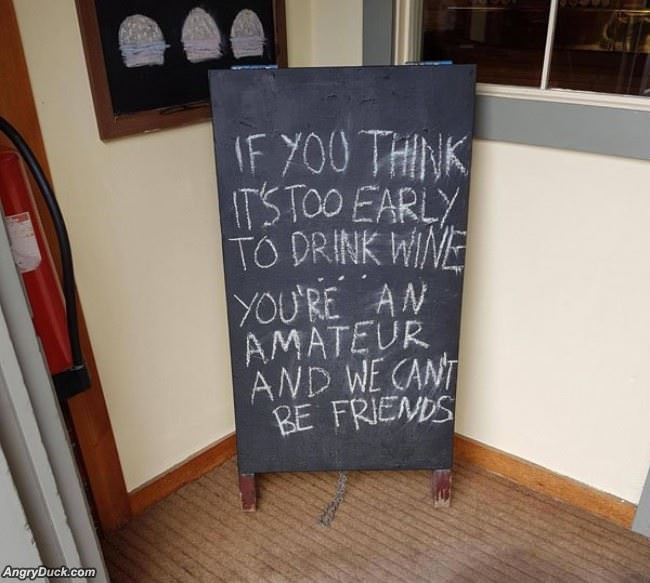 IF YOU THINK
IT'S TOO EARLY
TO DRINK WINE
...
YOU'RE AN
AMATEUR
AND WE CAN'T
BE FRIENDS
AngryDuck.com